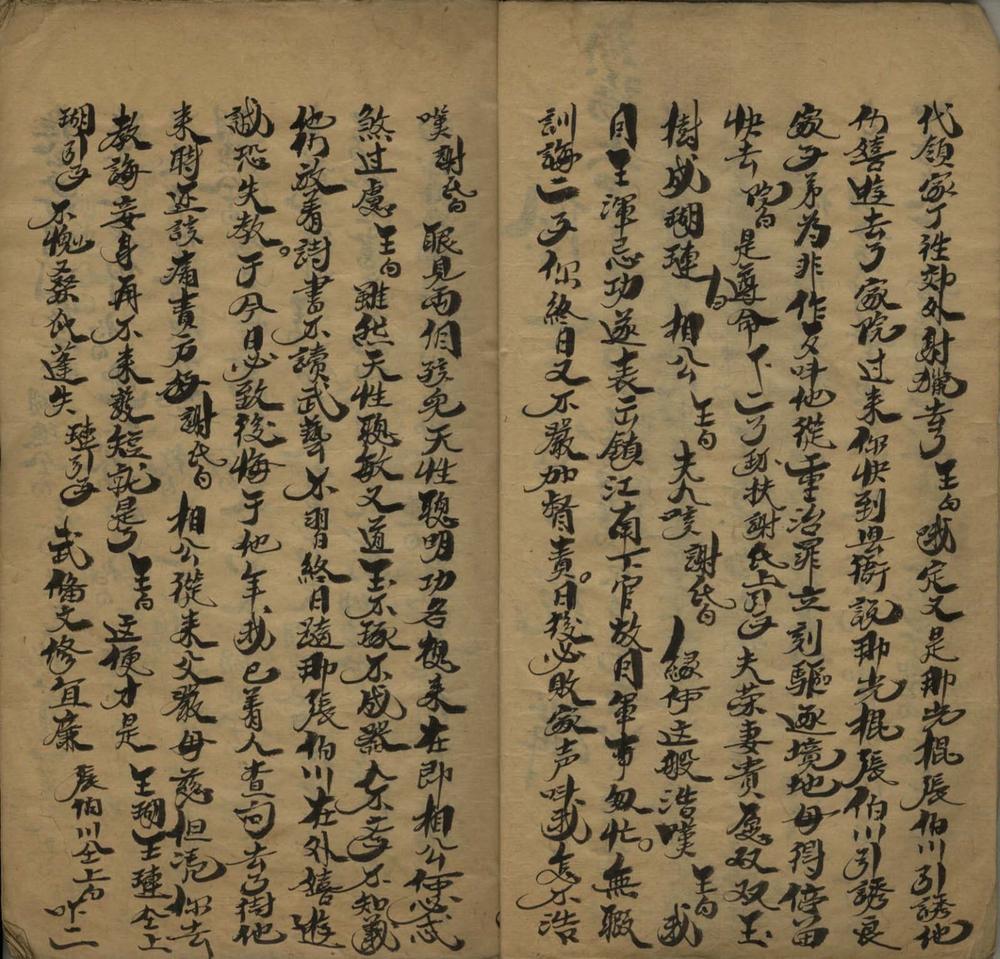 代領家丁往郊外射獵去了 王白 哦定又是那光棍張伯川引誘他
們嬉遊去了家院过来你快到縣衙說那光棍張伯川引誘良
家子弟為非作歹叫他從重治罪立刻驅逐境地毋得停留
快去 院白 是尊命下 二丫环扶謝氏上引子 夫荣妻貴 屋双双玉
樹成瑚璉 相公 王白 夫人嘆 謝氏白 緣何这般浩嘆 王白 我
自王渾忌功遂表出鎮江南下官放月軍市匆忙。無暇
訓誨二子你終日又不嚴加督責。日後必敗家声叫我怎不浩
嘆 謝氏白 眼見両個孩兒天性聰明功名槐来在即相公何必忒
煞过慮 王白 雖然天性聰敏又道玉不琢不成器人不学不知義
他們放着詩書不讀武藝不習終日隨那張伯川在外嬉遊
誠恐失教。于今日必致後悔于他年我已着人查问去了待他
来時还該痛責方好 謝氏白 相公從来父嚴母慈但凴你去
教誨妾身再不来護短就是了 王白 这便才是 王瑚王璉仝上
瑚引子 不愧桑弧蓬失 璉引子 武偹文修宜廉 張伯川仝上白 吖二